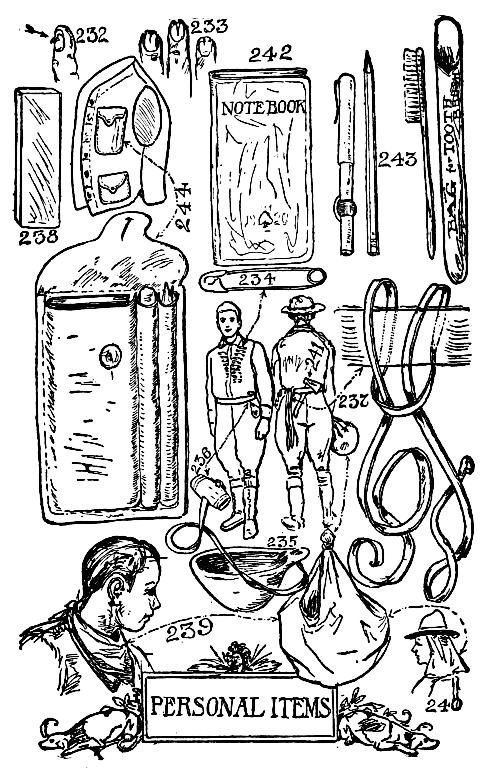 232
233
242
NOTE BOOK
1920
243
BAG for TOOTH BRUSH
238
244
234
241
237
236
235
239
240
PERSONAL ITEMS